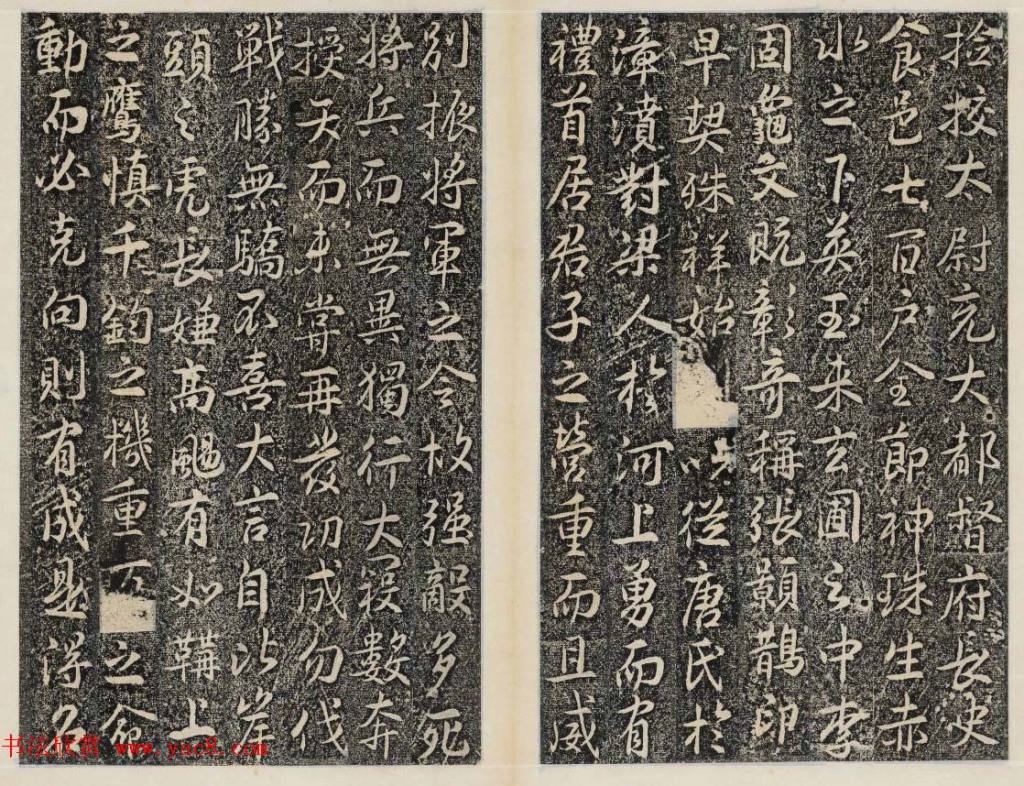 撿挍太尉充大都督府長史
食邑七百户全節神珠生赤
水之下英玉来玄圃之中李
固龜文既彰奇稱張顥鵲印
早契殊祥始從唐氏於
漳濆對梁人於河上勇而有
禮首居君子之營重而且威
別振將軍之令故强敵多死
將兵而無異獨行大數奔
授矢而未嘗再發功成勿伐
戰勝無驕不喜大言自比岸
頭之虎長嫌高颺有如韝上
之鷹慎千鈞之機重之命
動而必克向則有成是得久
书法欣赏 www.yac8.com